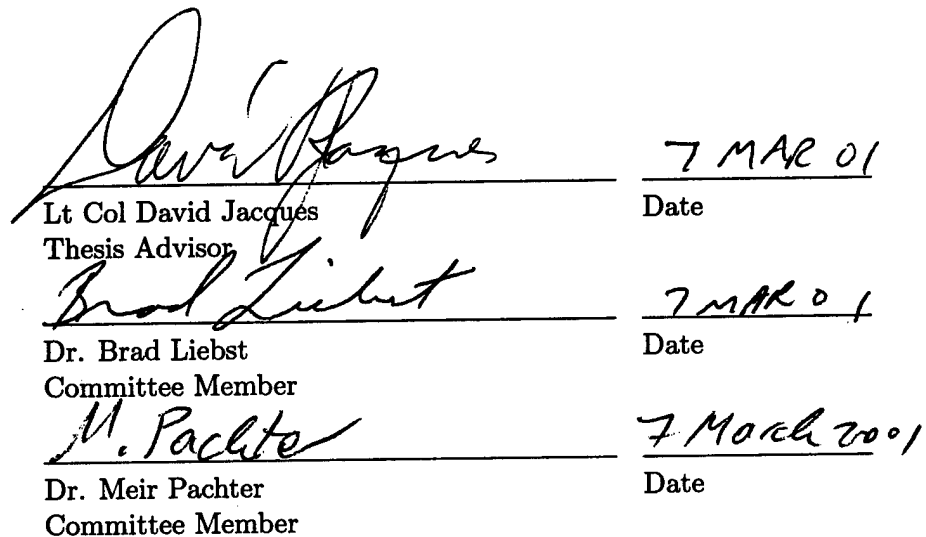 David Jacques 7 MAR 01
Lt Col David Jacques Date
Thesis Advisor
Brad Liebst 7 MAR 01
Dr. Brad Liebst Date
Committee Member
M. Pachter 7 March 2001
Dr. Meir Pachter Date
Committee Member